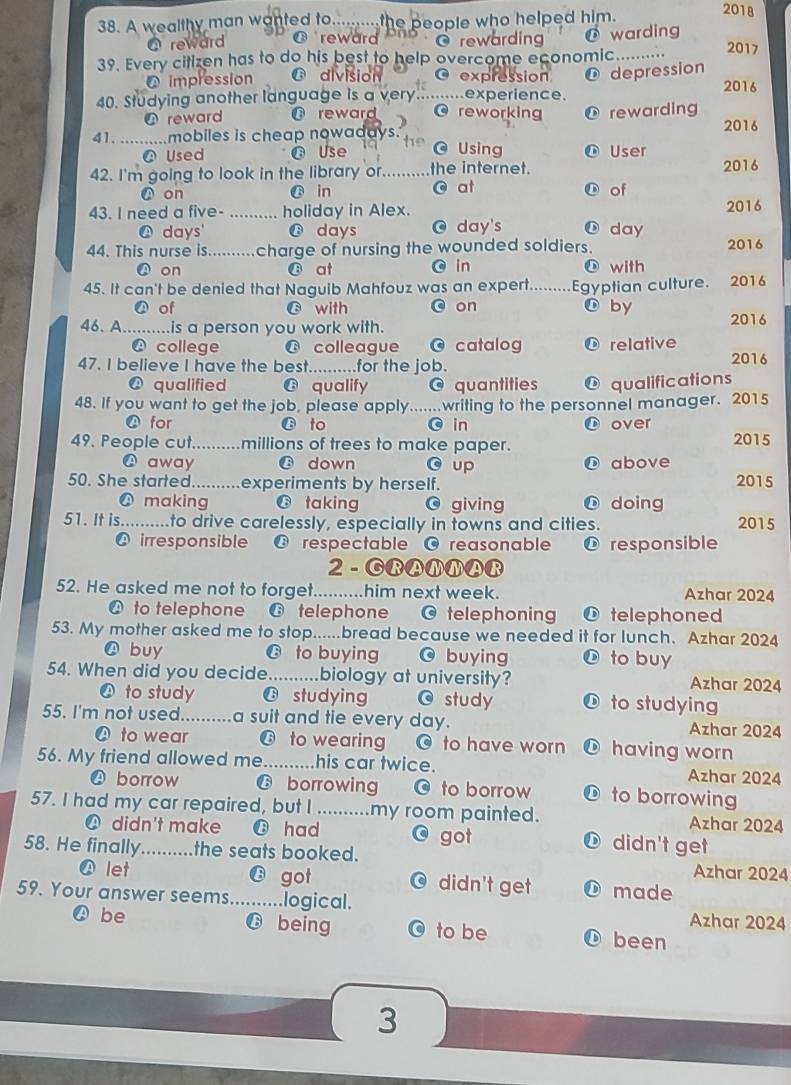 38. A wealthy man wanted to..........the people who helped him. 2018
A reward B reward C rewarding D warding
39. Every citizen has to do his best to help overcome economic.......... 2017
A impression B division C expression D depression
40. Studying another language is a very..........experience. 2016
A reward B reward C reworking D rewarding
41. ..........mobiles is cheap nowadays. 2016
A Used B Use C Using D User
42. I'm going to look in the library or..........the internet. 2016
A on B in C at D of
43. I need a five- .......... holiday in Alex. 2016
A days' B days C day's D day
44. This nurse is..........charge of nursing the wounded soldiers. 2016
A on B at C in D with
45. It can't be denied that Naguib Mahfouz was an expert.........Egyptian culture. 2016
A of B with C on D by
46. A..........is a person you work with. 2016
A college B colleague C catalog D relative
47. I believe I have the best..........for the job. 2016
A qualified B qualify C quantities D qualifications
48. If you want to get the job, please apply.......writing to the personnel manager. 2015
A for B to C in D over
49. People cut..........millions of trees to make paper. 2015
A away B down C up D above
50. She started..........experiments by herself. 2015
A making B taking C giving D doing
51. It is..........to drive carelessly, especially in towns and cities. 2015
A irresponsible B respectable C reasonable D responsible
2 - GRAMMAR
52. He asked me not to forget..........him next week. Azhar 2024
A to telephone B telephone C telephoning D telephoned
53. My mother asked me to stop......bread because we needed it for lunch. Azhar 2024
A buy B to buying C buying D to buy
54. When did you decide..........biology at university? Azhar 2024
A to study B studying C study D to studying
55. I'm not used..........a suit and tie every day. Azhar 2024
A to wear B to wearing C to have worn D having worn
56. My friend allowed me..........his car twice. Azhar 2024
A borrow B borrowing C to borrow D to borrowing
57. I had my car repaired, but I ..........my room painted. Azhar 2024
A didn't make B had C got D didn't get
58. He finally..........the seats booked. Azhar 2024
A let B got C didn't get D made
59. Your answer seems..........logical. Azhar 2024
A be B being C to be D been
3